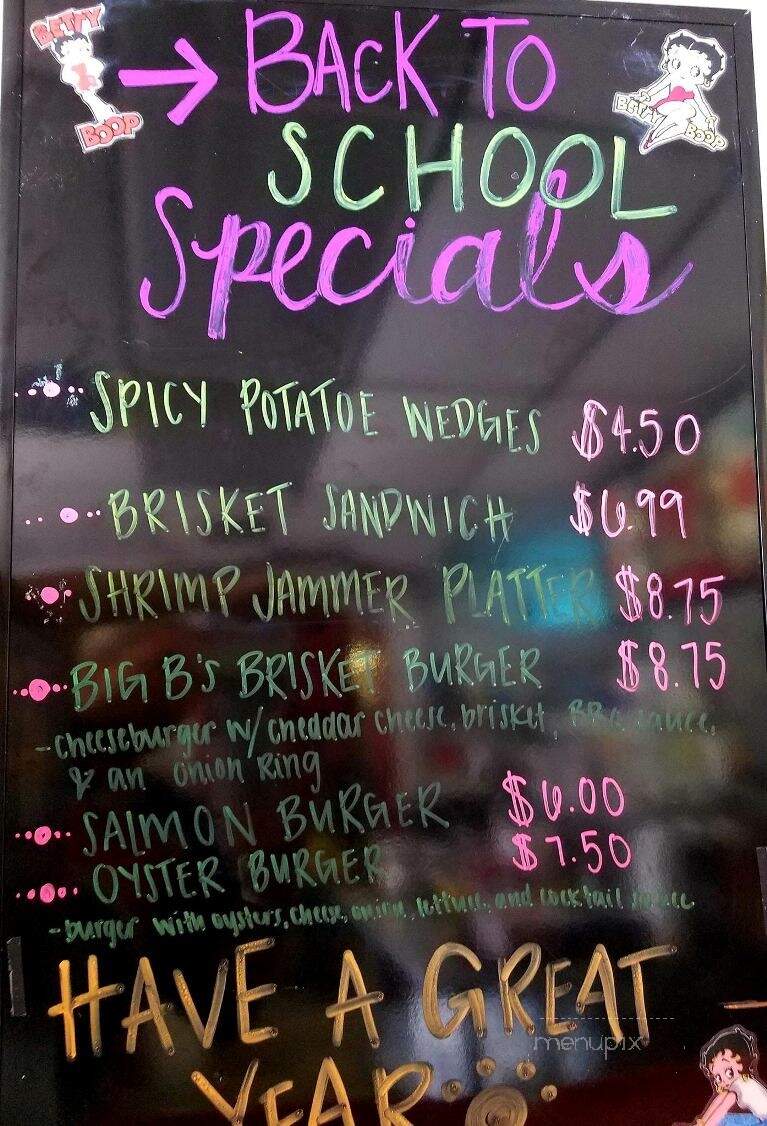 BETTY
BOOP
→ BACK TO
BETTY BOOP
SCHOOL
Specials
SPICY POTATOE WEDGES $4.50
BRISKET SANDWICH $6.99
SHRIMP JAMMER PLATTER $8.75
BIG B'S BRISKET BURGER $8.75
-cheeseburger w/ cheddar cheese, brisket, BBQ sauce,
& an onion Ring
SALMON BURGER $6.00
OYSTER BURGER $7.50
-burger with oysters, cheese, onion, lettuce, and cocktail sauce
HAVE A GREAT
menupix
YEAR